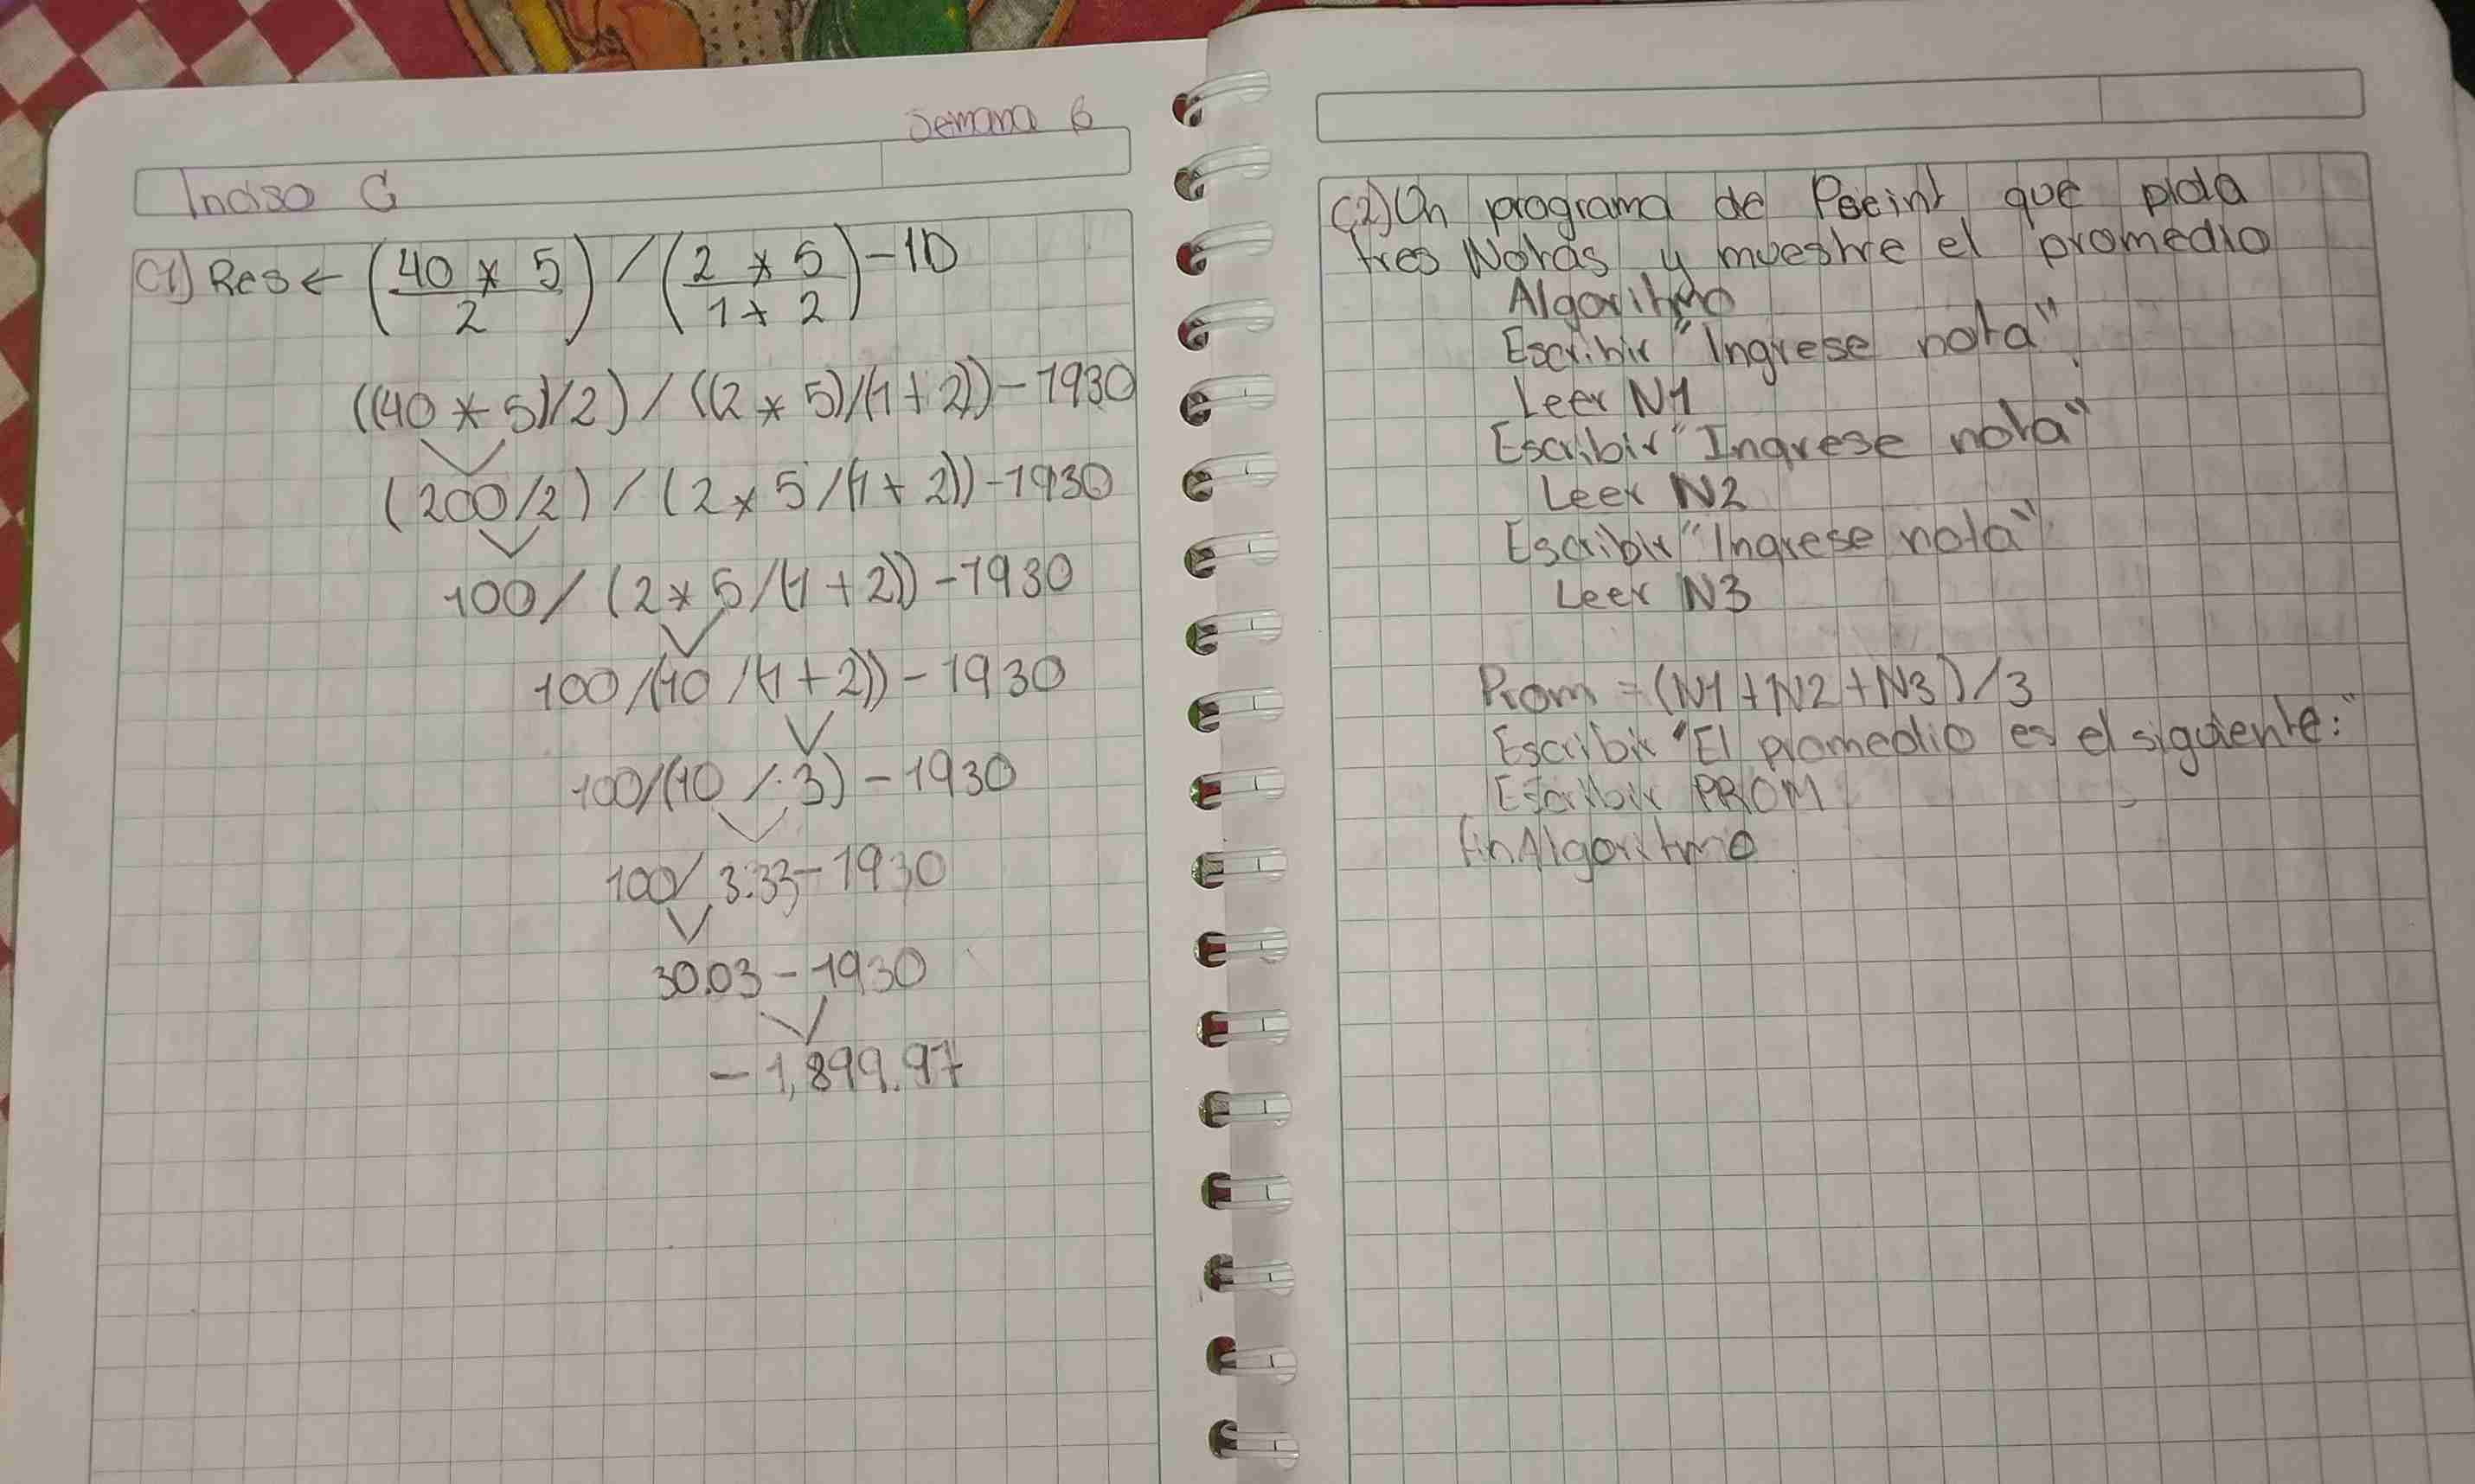 Semana 6
Inciso C
C1) Res ← (40 * 5 / 2) / (2 * 5 / 1 + 2) - ID
((40 * 5)/2) / ((2 * 5)/(1 + 2)) - 1930
(200/2) / (2 * 5 /(1 + 2)) - 1930
100 / (2 * 5 /(1 + 2)) - 1930
100 /(10 /(1 + 2)) - 1930
100/(10 / 3) - 1930
100/ 3.33 - 1930
30.03 - 1930
- 1,899.97
C2) Un programa de Pseint que pida
tres Notas y muestre el promedio
Algoritmo
Escribir "Ingrese nota"
Leer N1
Escribir "Ingrese nota"
Leer N2
Escribir "Ingrese nota"
Leer N3
Prom = (N1 + N2 + N3) / 3
Escribir "El promedio es el siguiente:"
Escribir PROM
finAlgoritmo